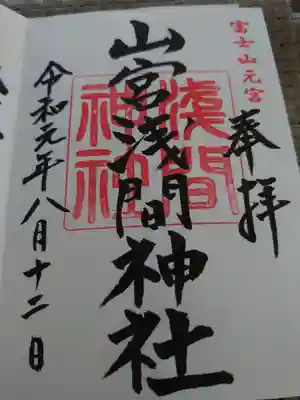 富士山元宮
奉拝
山宮浅間神社
浅間
神社
令和元年八月十二日